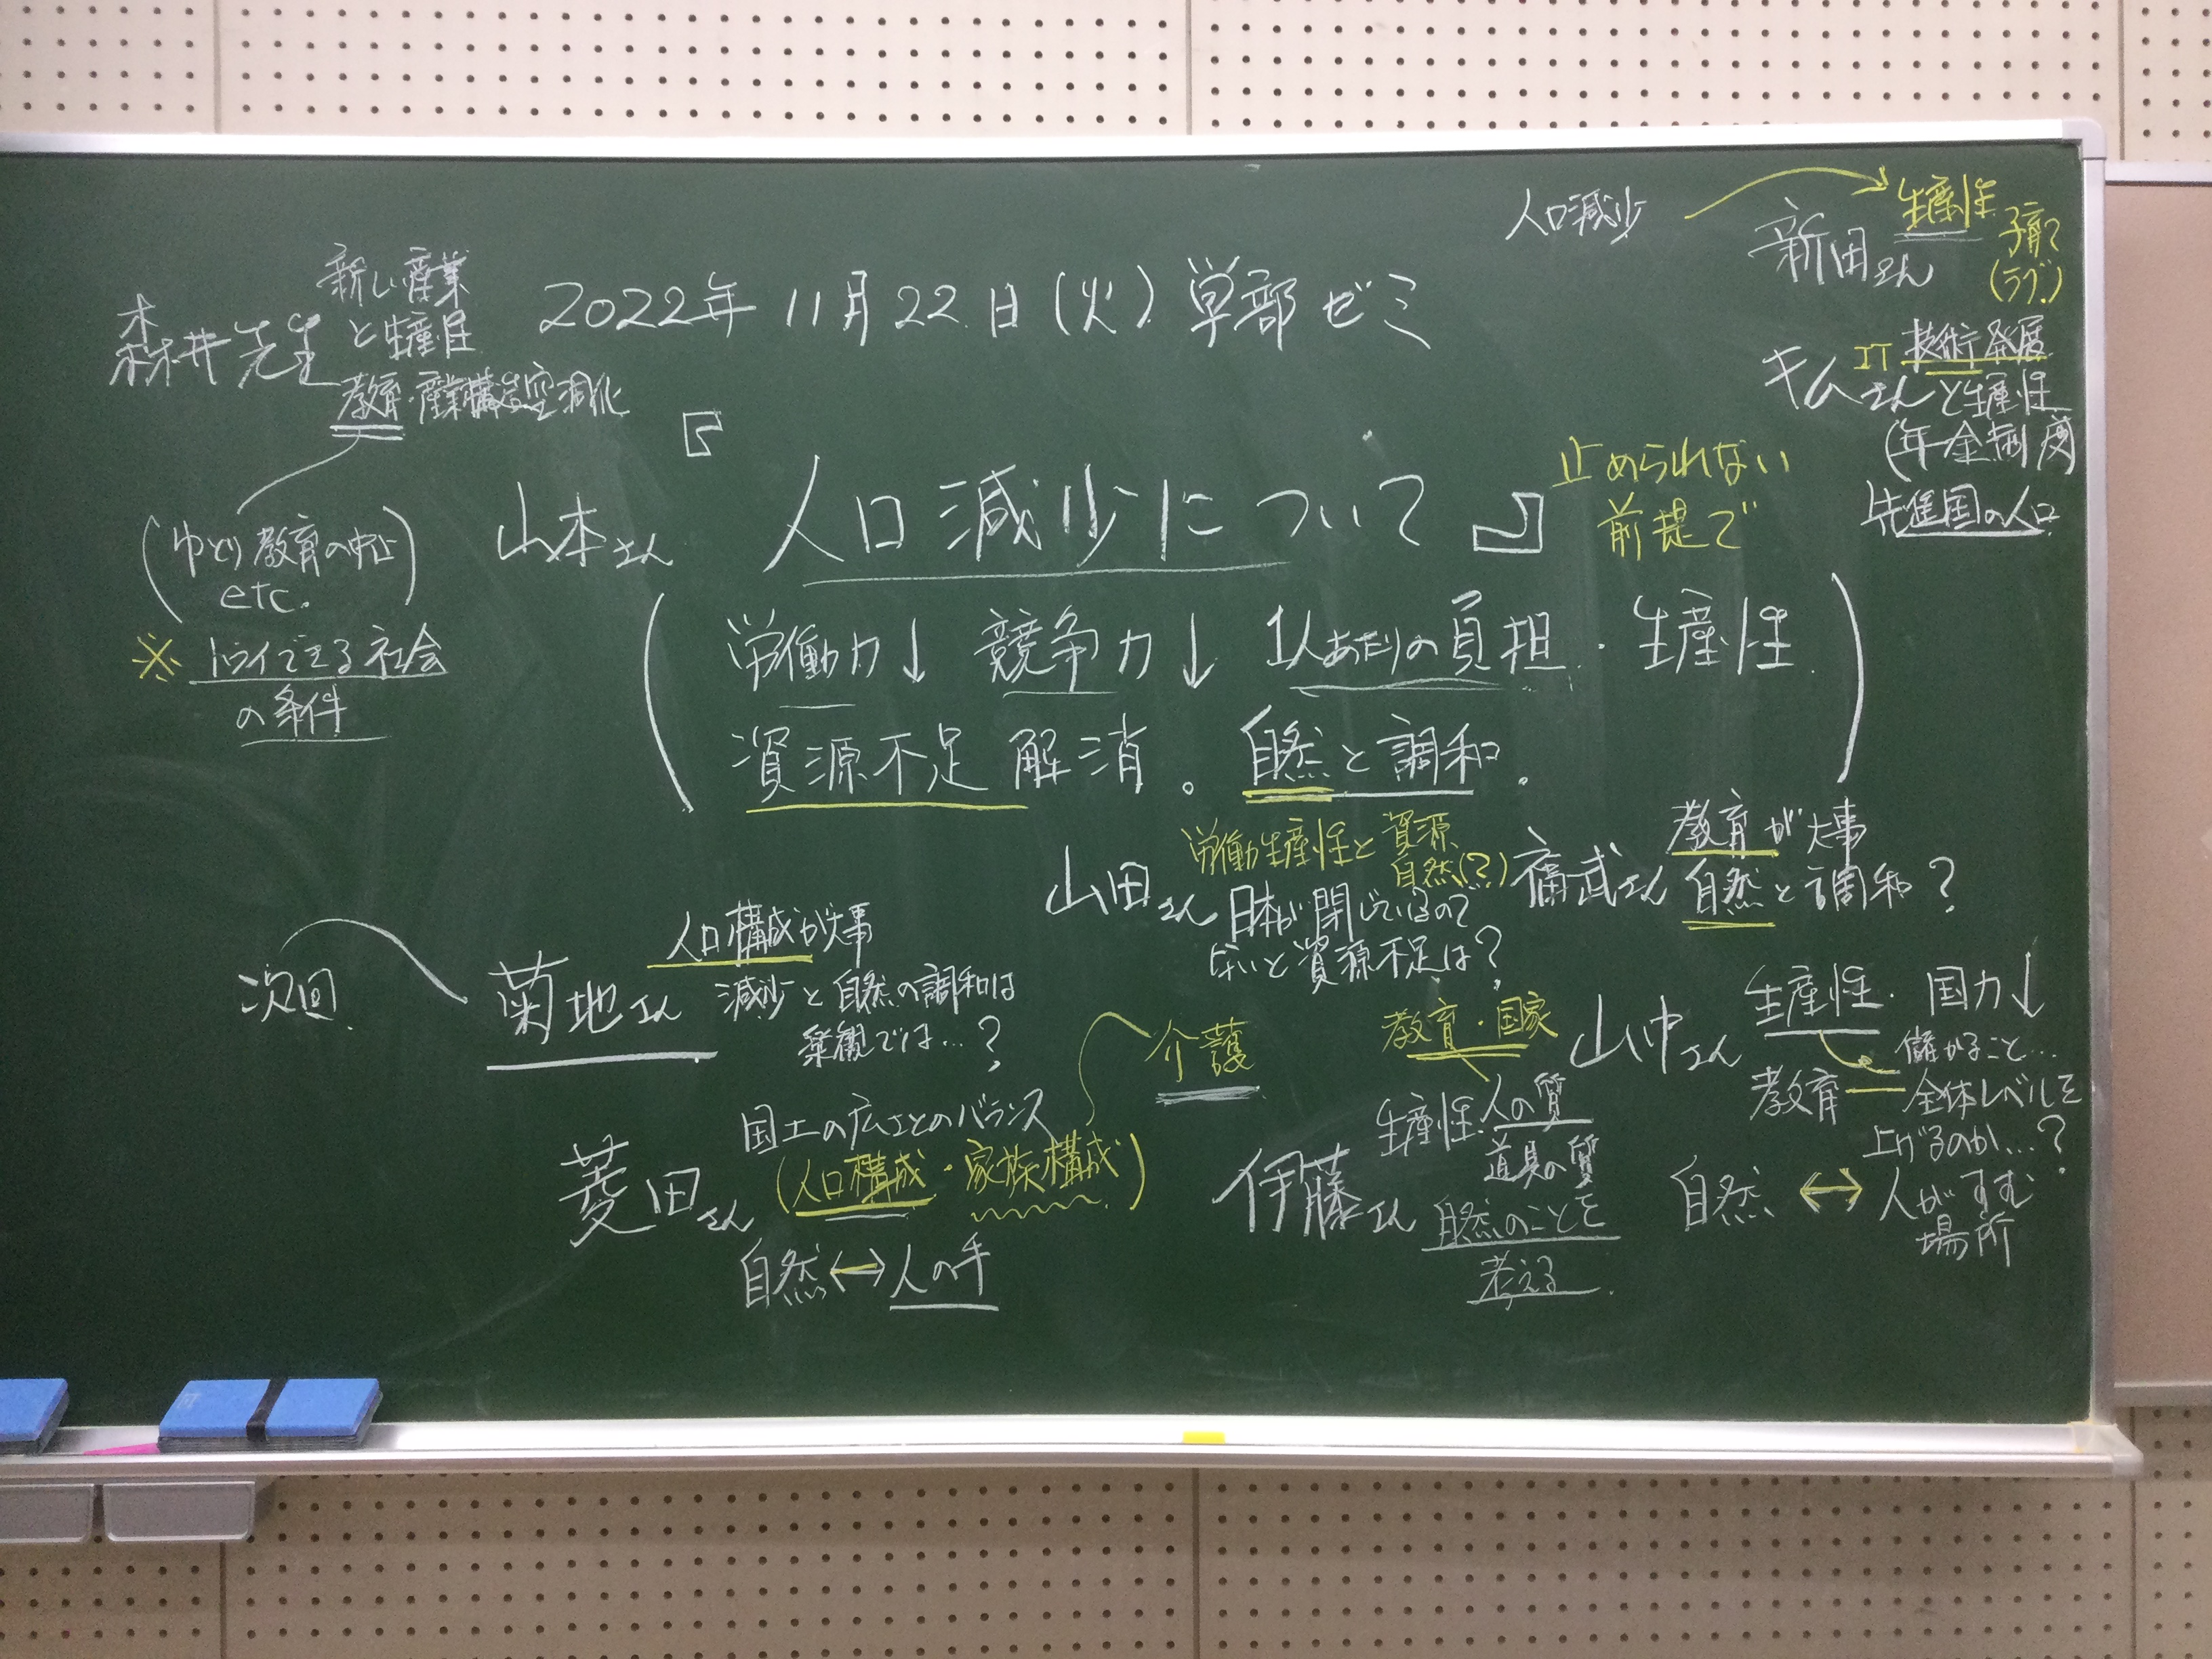 人口減少
生産性
子育て
新田さん
2022年 11月22日(火)学部ゼミ
新しい産業
と生産性
森井先生
教育・産業構造空洞化
(ゆとり教育の中止
etc.)
※ トライできる社会
の条件
キムさん
IT 技術発展
と生産性
(年金制度)
先進国の人口
『
山本さん
人口減少について』
止められない
前提で
(労働力↓ 競争力↓ 1人あたりの負担・生産性
資源不足解消。自然と調和.)
労働生産性と資源
自然(?)
山田さん
日本が閉じているので
ないと資源不足は?
教育が大事
福武さん
自然と調和?
次回
菊地さん
人口構成が大事
減少と自然の調和は
楽観では…?
介護
国土の広さとのバランス
菱田さん
(人口構成・家族構成)
自然↔人の手
教育・国家
生産性 人の質
道具の質
伊藤さん
自然のことを
考える
山中さん
生産性. 国力↓
儲かること…
教育
全体レベルを
上げるのか…?
自然↔人がすむ
場所